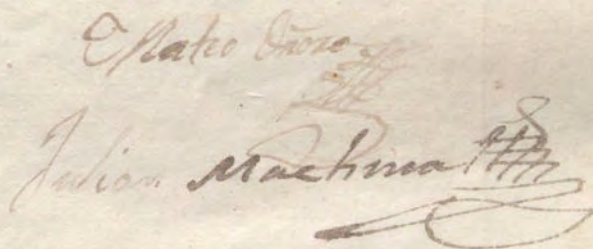 Mateo Oñoro
Julian Machina